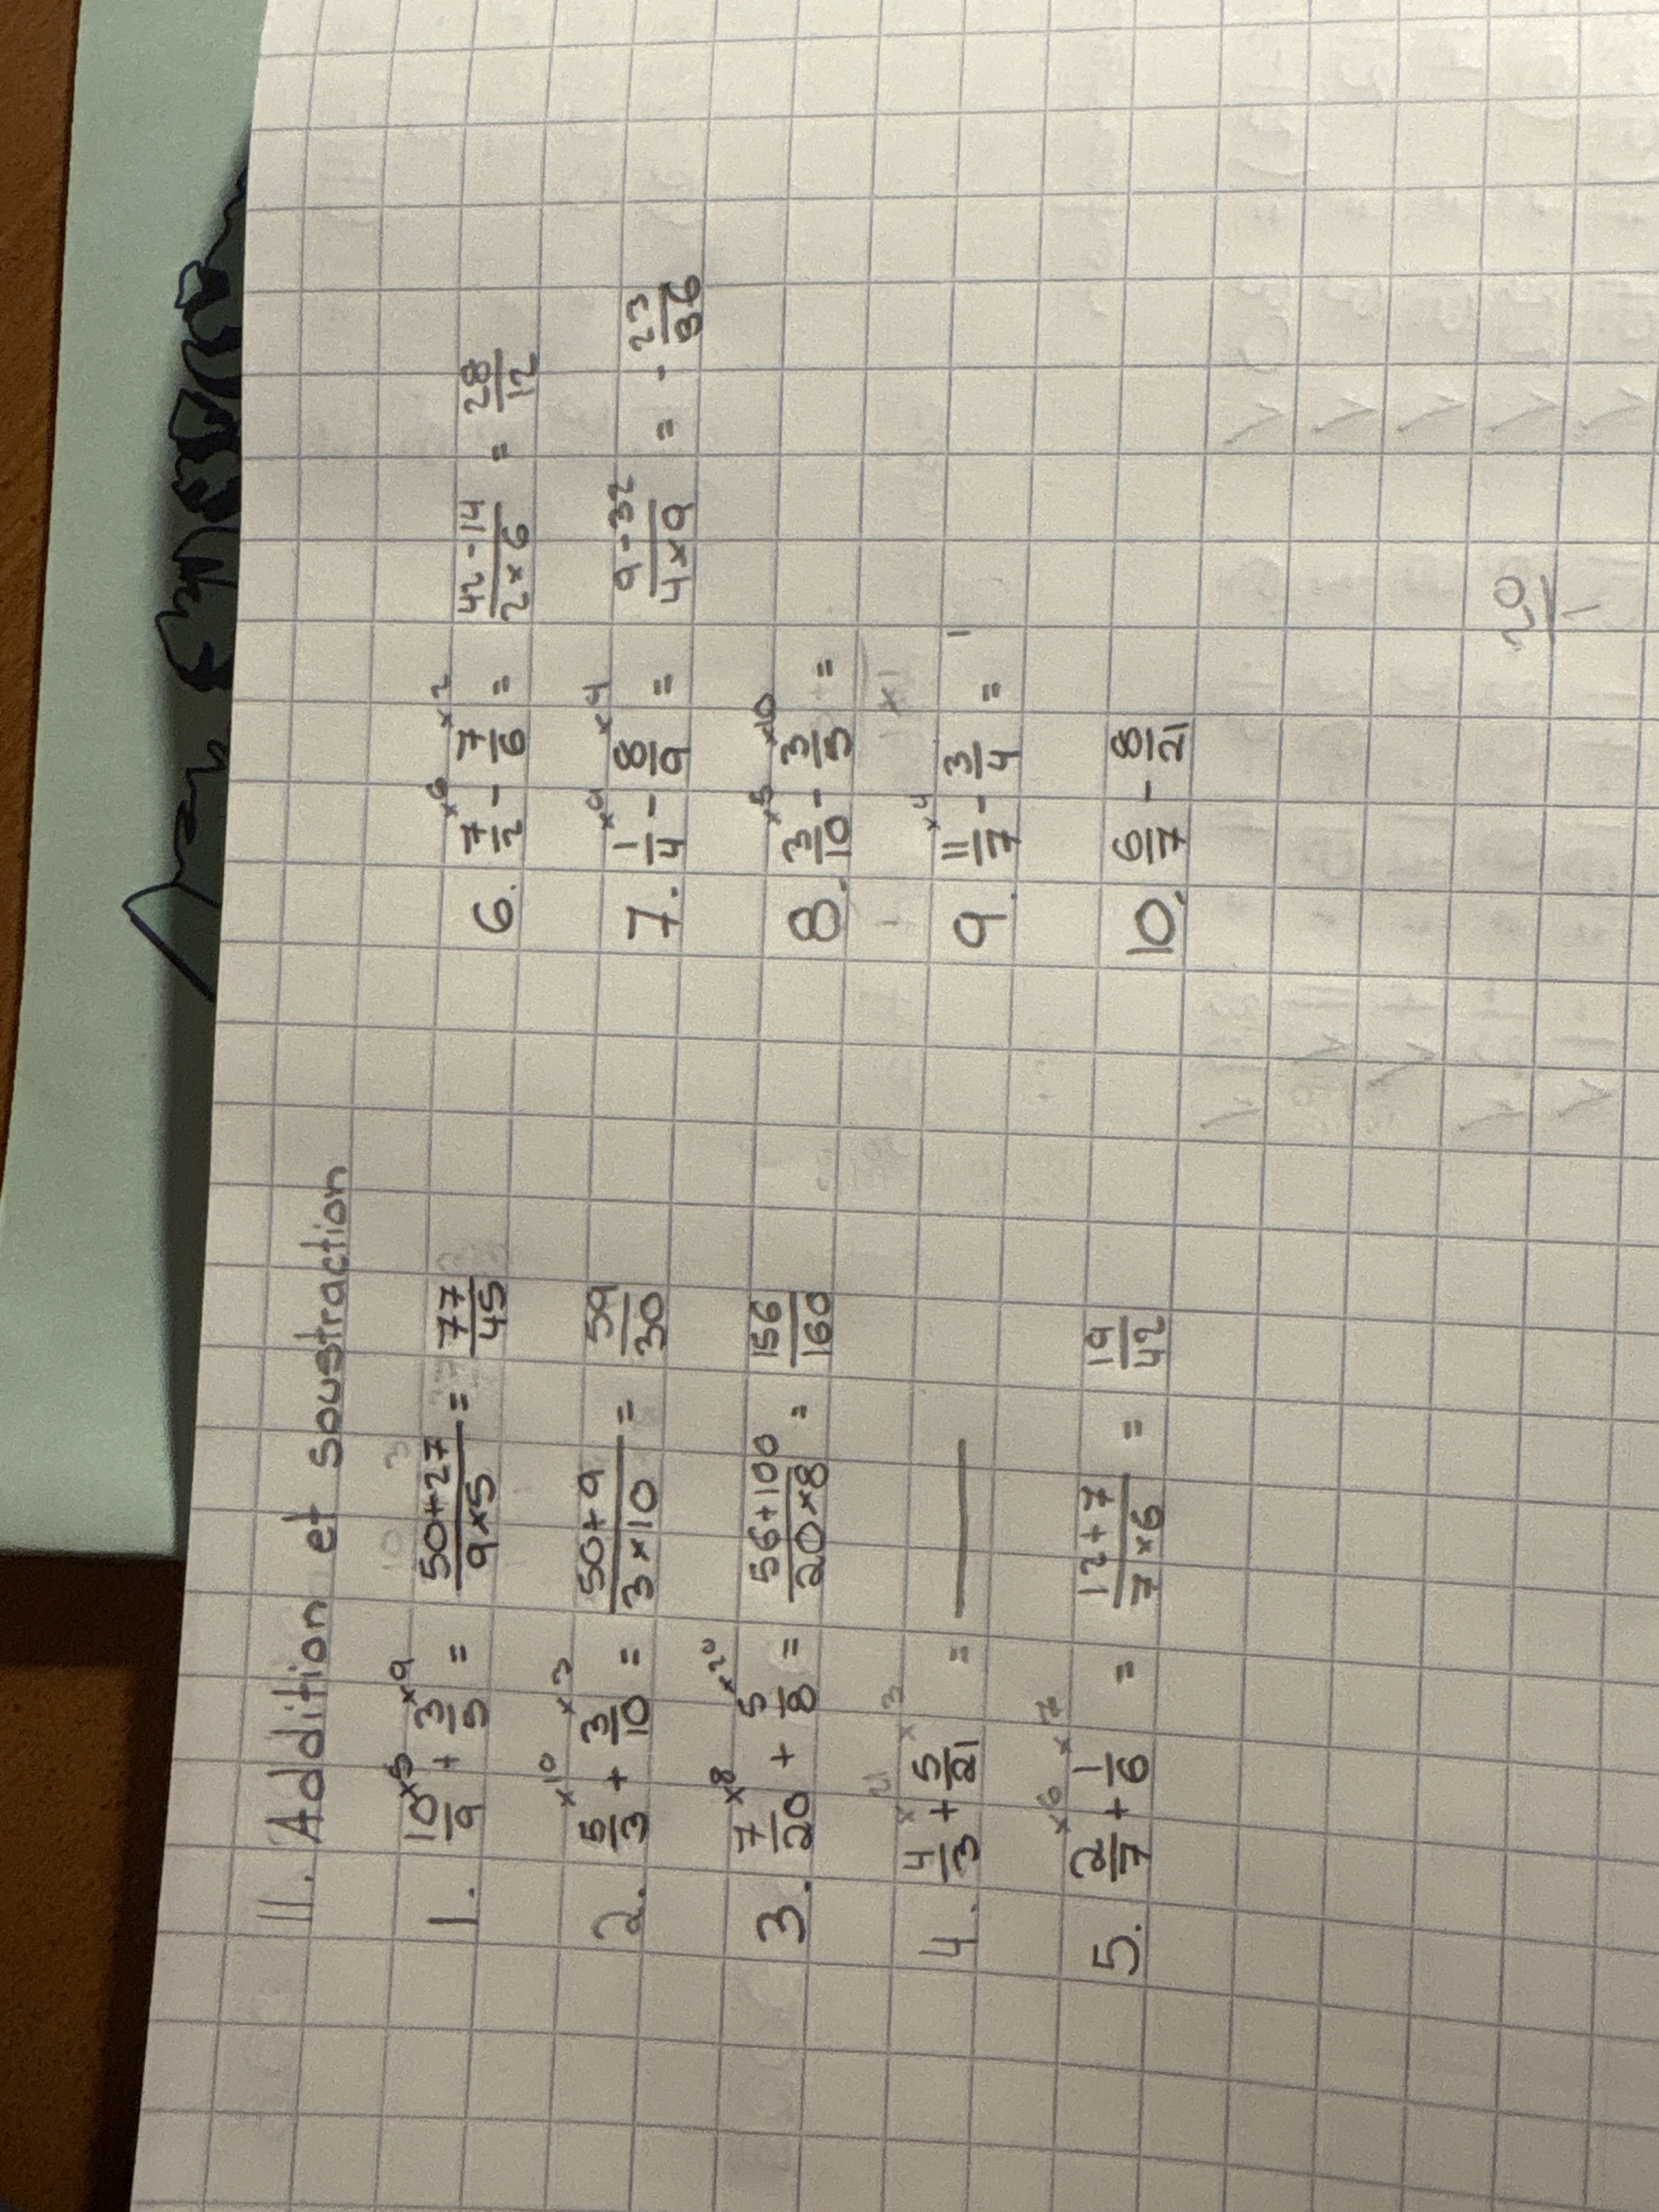 III. Addition et soustraction
1. 10/9 ×5 + 3/5 ×9 = (50+27)/(9×5) = 77/45
2. 5/3 ×10 + 3/10 ×3 = (50+9)/(3×10) = 59/30
3. 7/20 ×8 + 5/8 ×20 = (56+100)/(20×8) = 156/160
4. 4/3 ×21 + 5/21 ×3 =
5. 2/7 ×6 + 1/6 ×7 = (12+7)/(7×6) = 19/42
6. 7/2 ×6 - 7/6 ×2 = (42-14)/(2×6) = 28/12
7. 1/4 ×9 - 8/9 ×4 = (9-32)/(4×9) = - 23/36
8. 3/10 ×5 - 3/5 ×10 =
9. 11/7 ×4 - 3/4 =
10. 6/7 - 8/21
20/1